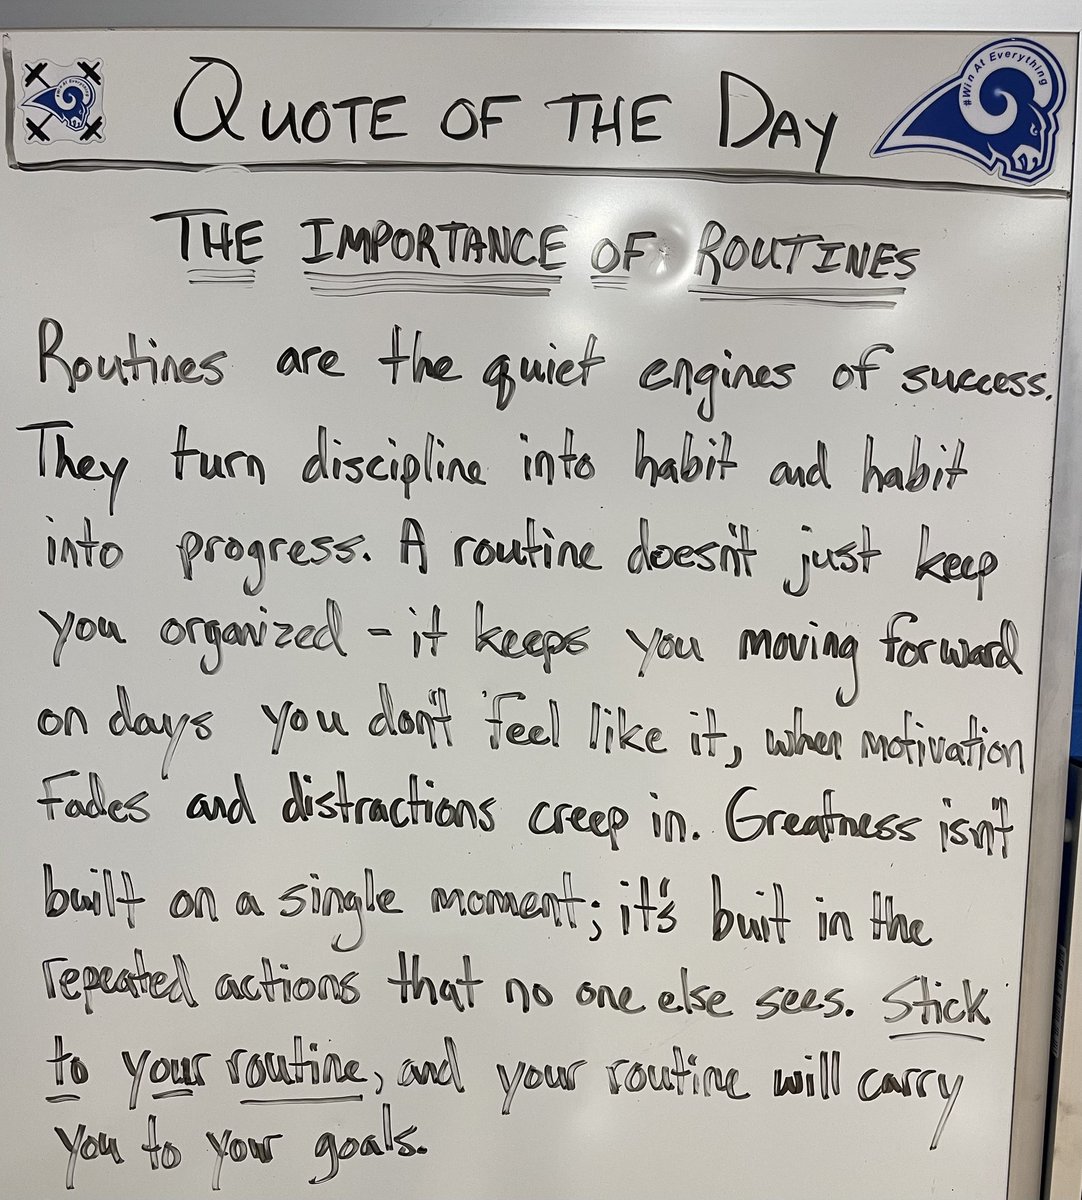 QUOTE OF THE DAY
#Win At Everything
#Win At Everything
THE IMPORTANCE OF ROUTINES
Routines are the quiet engines of success.
They turn discipline into habit and habit
into progress. A routine doesn't just keep
you organized - it keeps you moving forward
on days you don't feel like it, when motivation
fades and distractions creep in. Greatness isn't
built on a single moment; it's built in the
repeated actions that no one else sees. Stick
to your routine, and your routine will carry
you to your goals.